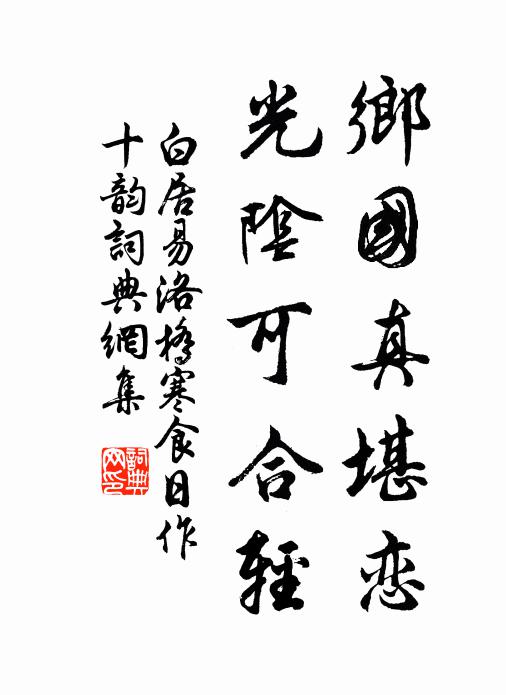 鄉國真堪恋
光陰可合輕
白居易洛橋寒食日作
十韵詞典網集
詞典网印